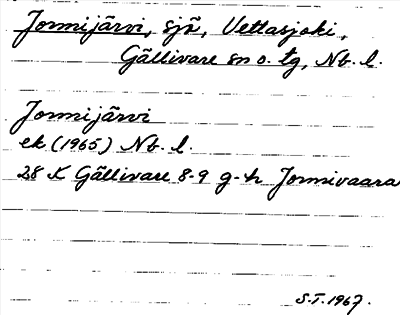 Jormijärvi, sjö, Vettasjoki,
Gällivare sn o. tg, Nb. l.
Jormijärvi
ek (1965) Nb. l.
28 K Gällivare 8-9 g-h Jormivaara
S.T. 1967.